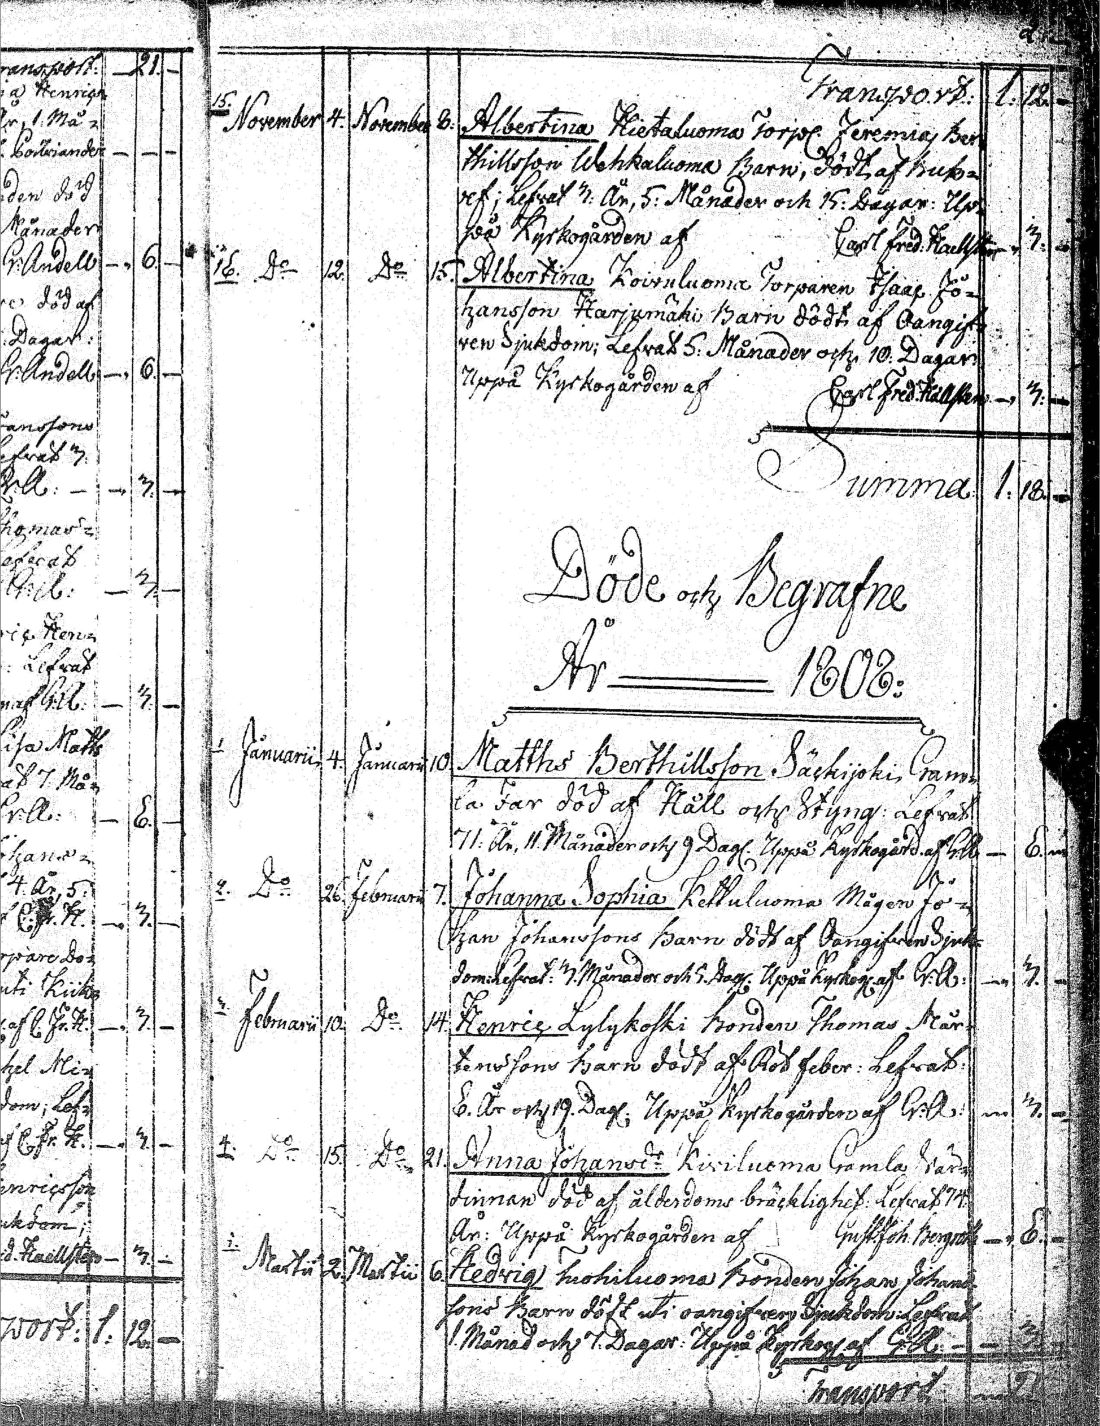 ransport: — 21. —
ia Henrich
År, 1. Må=
— — —
den död
Månader
Gr: Andell —, 6. —
re död af
Dagar:
Gr: Andell —, 6. —
hanssons
Lefrat 3.
Gr: A: — —, 3. —
Thomas=
Lefrat
Gr: A: — 3. —
ric Hen=
: Lefrat
af G: A: — 3. —
isa Matts
at 7. Må=
Gr: A: — 6. —
hans=
4. År, 5.
C. Fr. H. —, 3. —
rpare Do=
uti Kick=
af C. Fr. H. —, 3. —
hel Mi=
dom; Lef=
af C. Fr. H. —, 3. —
enricsson
ukdom;
d. Haellsten — 3. —
port: 1. 12. —
Transport: 1. 12 —
15. November 4. November 8. Albertina Hietaluoma Torp. Jeremias Ber
thillsson Wehkaluoma Barn, dödt af
Lefrat 3. År, 5. Månader och 15. Dagar: Up=
på Kyrkogården af Carl Fred. Haellsten —, 3. —
16. Do 12. Do 15. Albertina Koivuluoma Torparen Isaac Jo=
hansson Harjumäki Barn dödt af Oangif=
ven Sjukdom; Lefrat 5. Månader och 10. Dagar
Uppå Kyrkogården af Carl Fred. Haellsten —, 3. —
Summa 1. 18. —
Döde och Begrafne
År — 1808:
1. Januarii 4. Januarii 10. Matths Berthillsson Säckijoki Gam=
la Far död af Håll och Styng: Lefrat
71. År, 11. Månader och 9 Dag. Uppå Kyrkogård. af G: A: — 6. —
2. Do 26. Februarii 7. Johanna Sophia Kettuluoma Mågen Jo=
han Johanssons Barn dödt af Oangifven Sjuk=
dom: Lefrat: 3. Månader och 5. Dag. Uppå Kyrkog. af Gr: A: — 3. —
3. Februarii 10. Do 14. Henric Lylykoski Bonden Thomas Mår=
tenssons Barn dödt af Röt feber: Lefrat:
6. År och 19. Dag. Uppå Kyrkogården af Gr: A: — 3. —
4. Do 15. Do 21. Anna Johansdr Kiviluoma Gamla Vär=
dinnan död af ålderdoms bräcklighet: Lefrat 74.
År: Uppå Kyrkogården af Gust. Joh. —, 6. —
5. Martii 2. Martii 6. Hedvig Luohiluoma Bonden Johan Johans=
sons Barn dödt uti oangifven Sjukdom: Lefrat
1. Månad och 7. Dagar: Uppå Kyrkog. af G: A: — — 3. —
Transport — 21